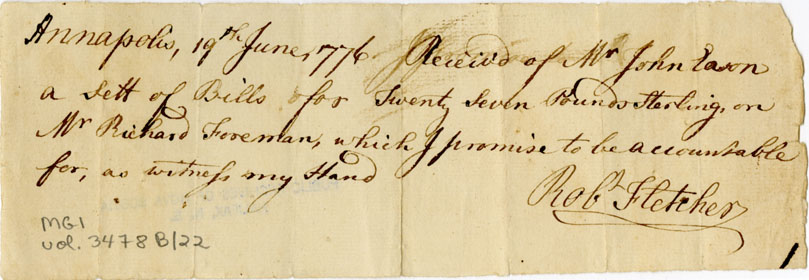 Annapolis, 19th June, 1776. Receiv'd of Mr John Eason
a Sett of Bills for Twenty Seven Pounds Sterling, on
Mr Richard Foreman, which I promise to be accountable
for, as witness my Hand
Robt Fletcher
MG1
vol. 3478 B/22